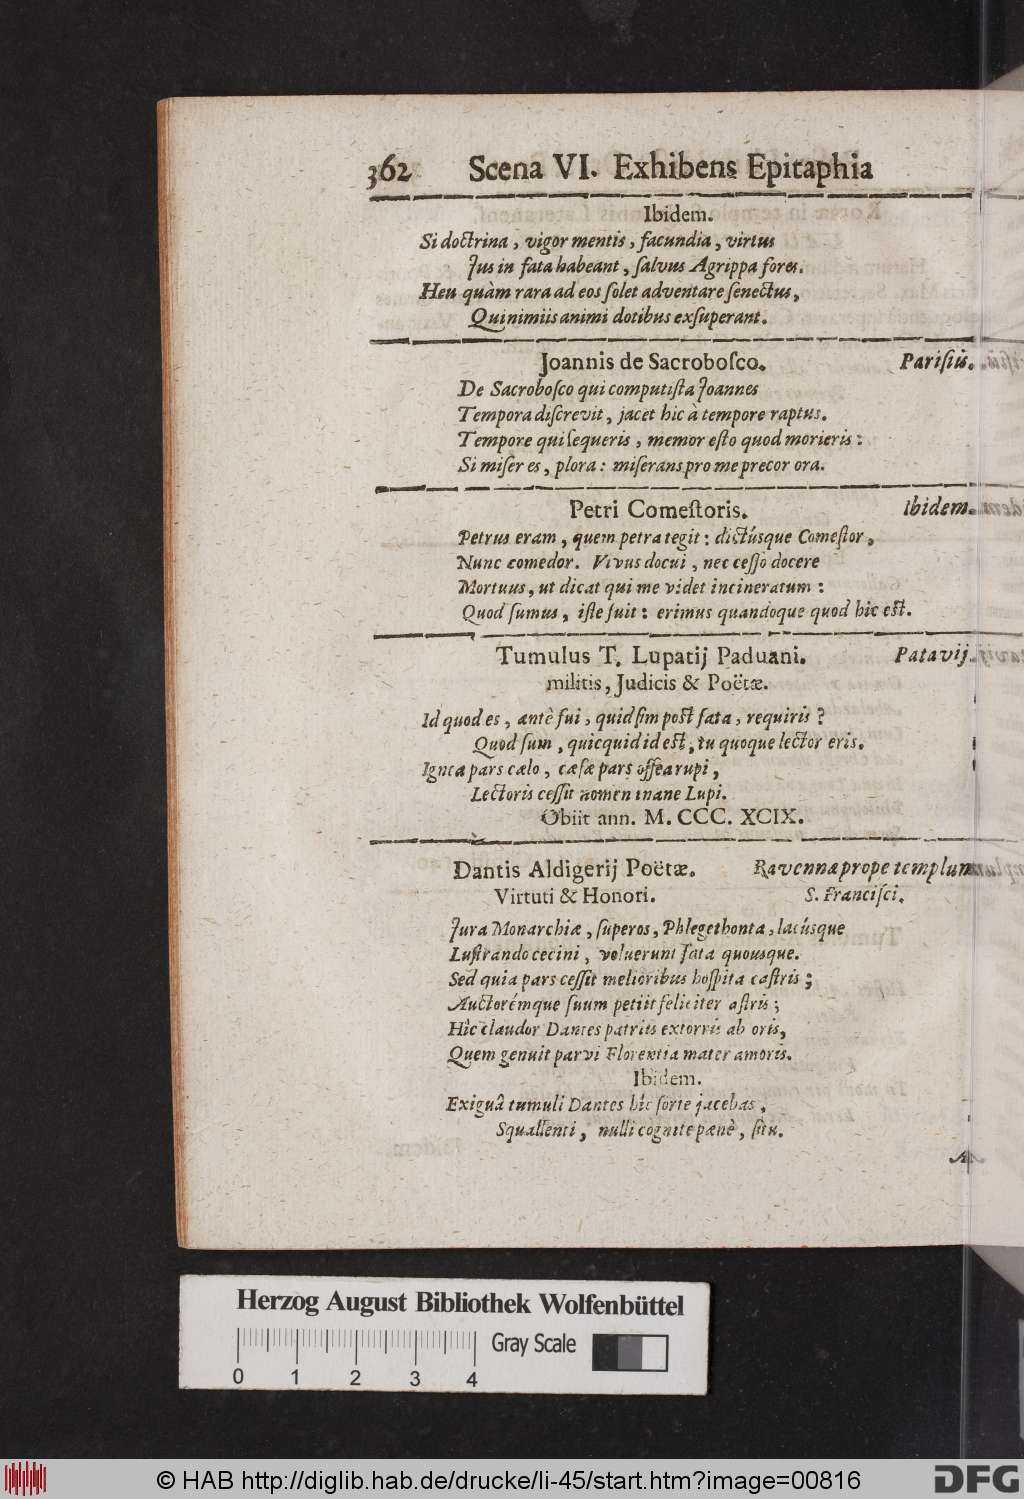 362 Scena VI. Exhibens Epitaphia
Ibidem.
Si doctrina, vigor mentis, facundia, virtus
Jus in fata habeant, ſalvus Agrippa fores.
Heu quàm rara ad eos ſolet adventare ſenectus,
Qui nimiis animi dotibus exſuperant.
Joannis de Sacroboſco. Pariſiis.
De Sacroboſco qui computiſta Joannes
Tempora diſcrevit, jacet hic à tempore raptus.
Tempore qui ſequeris, memor eſto quod morieris:
Si miſer es, plora: miſerans pro me precor ora.
Petri Comeſtoris. Ibidem.
Petrus eram, quem petra tegit: dictúsque Comeſtor,
Nunc comedor. Vivus docui, nec ceſſo docere
Mortuus, ut dicat qui me videt incineratum:
Quod ſumus, iſte fuit: erimus quandoque quod hic eſt.
Tumulus T. Lupatij Paduani. Patavij.
militis, Judicis & Poëtæ.
Id quod es, antè fui, quid ſim poſt fata, requiris?
Quod ſum, quicquid id eſt, tu quoque lector eris.
Ignea pars cælo, cæſæ pars oſſea rupi,
Lectoris ceſſit nomen inane Lupi.
Obiit ann. M. CCC. XCIX.
Dantis Aldigerij Poëtæ. Ravennæ prope templum
Virtuti & Honori. S. Franciſci.
Jura Monarchiæ, ſuperos, Phlegethonta, lacúsque
Luſtrando cecini, voluerunt fata quousque.
Sed quia pars ceſſit melioribus hoſpita caſtris;
Auctorémque ſuum petiit feliciter aſtris;
Hîc claudor Dantes patriis extorris ab oris,
Quem genuit parvi Florentia mater amoris.
Ibidem.
Exiguâ tumuli Dantes hîc ſorte jacebas,
Squallenti, nulli cognite pænè, ſitu.
Herzog August Bibliothek Wolfenbüttel
Gray Scale
0 1 2 3 4
© HAB http://diglib.hab.de/drucke/li-45/start.htm?image=00816
DFG